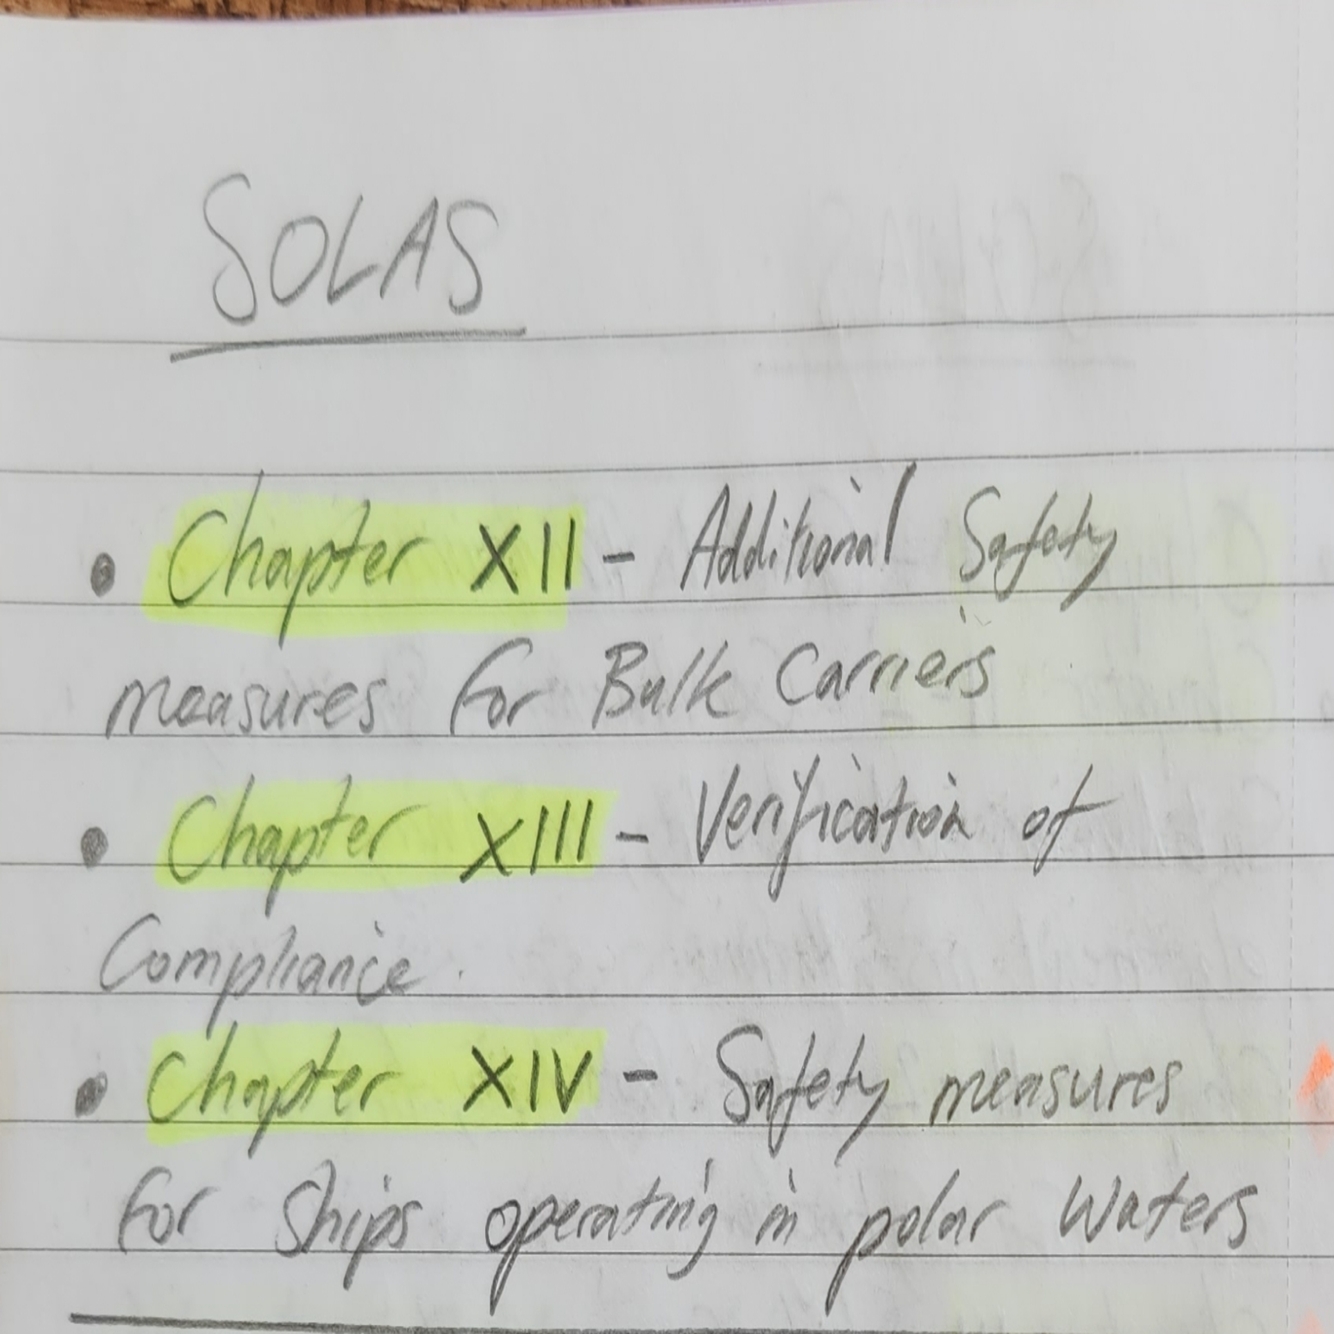 SOLAS
• Chapter XII - Additional Safety
measures for Bulk Carriers
• Chapter XIII - Verification of
Compliance.
• Chapter XIV - Safety measures
for Ships operating in polar Waters